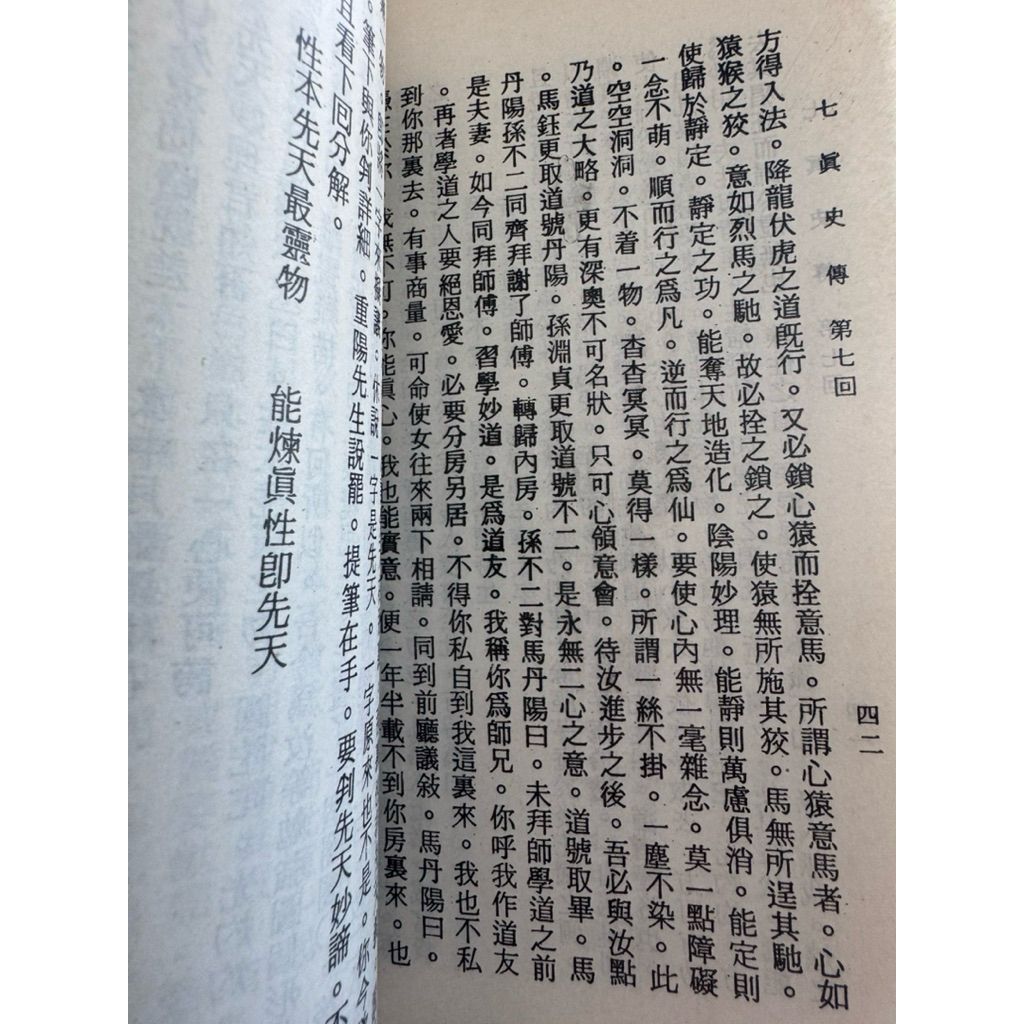 七眞史傳 第七回
四二
方得入法。降龍伏虎之道旣行。又必鎖心猿而拴意馬。所謂心猿意馬者。心如
猿猴之狡。意如烈馬之馳。故必拴之鎖之。使猿無所施其狡。馬無所逞其馳。
使歸於靜定。靜定之功。能奪天地造化。陰陽妙理。能靜則萬慮俱消。能定則
一念不萌。順而行之爲凡。逆而行之爲仙。要使心內無一毫雜念。莫一點障礙
。空空洞洞。不着一物。杳杳冥冥。莫得一樣。所謂一絲不掛。一塵不染。此
乃道之大略。更有深奧不可名狀。只可心領意會。待汝進步之後。吾必與汝點
。馬鈺更取道號丹陽。孫淵貞更取道號不二。是永無二心之意。道號取畢。馬
丹陽孫不二同齊拜謝了師傅。轉歸內房。孫不二對馬丹陽曰。未拜師學道之前
是夫妻。如今同拜師傅。習學妙道。是爲道友。我稱你爲師兄。你呼我作道友
。再者學道之人要絕恩愛。必要分房另居。不得你私自到我這裏來。我也不私
到你那裏去。有事商量。可命使女往來兩下相請。同到前廳議敍。馬丹陽曰。
你能眞心。我也能實意。便一年半載不到你房裏來。也
一字是先天。一字原來也不是。你今
。筆下與你判詳細。重陽先生說罷。提筆在手。要判先天妙諦。
且看下回分解。
性本先天最靈物 能煉眞性卽先天